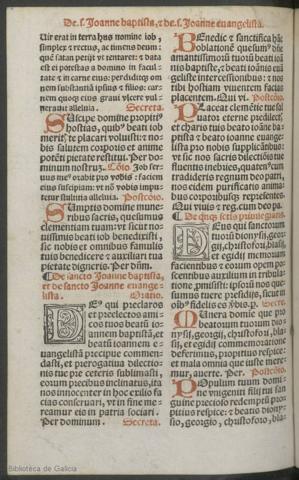 De.s.Joanne baptista, & de.s.Joanne euangelista.
Uir erat in terra hus nomine iob,
simplex & rectus, ac timens deum:
quē satan petijt vt tentaret: & data
est ei potestas a domino in facul-
tate & in carne eius: perdiditq; om-
nem substantiā ipsius & filios: car-
nem quoq; eius graui vlcere vul-
nerauit. alleluia. Secreta.
SUscipe domine propitiꝰ
hostias, quibꝰ beati iob
merit; te placari voluisti: & no-
bis salutem corporis et anime
potēti pietate restitui. Per do-
minum nostrū. Cōio. Job ser-
uus meꝰ orabit pro vobis: faciem
eius suscipiam: vt nō vobis impu-
tetur stulticia. alleluia. Postcōio.
SUmptis domine mune-
ribus sacris, quesumus
clementiam tuam: vt sicut no-
uissimis beati iob benedixisti,
sic nobis et omnibus famulis
tuis benedicere & auxiliari tua
pietate digneris. Per dñm.
De sancto Joanne baptista,
et de sancto Joanne euange-
lista. Oratio.
DEꝰ qui preclaros
et preelectos ami-
cos tuos beatū io-
annem baptistā, et
beatū ioannem e-
uangelistā precipue commen-
dasti, et prerogatiua dilectio-
nis tue pre ceteris sublimasti,
eorum precibus inclinatus, ita
nos innocenter in hoc exilio fa-
cias conseruari, vt in fine me-
reamur eis in patria sociari.
Per dominum. Secreta.
BEnedic & sanctifica hāc
oblationē quesumꝰ dñe
amantissimorū tuorū beati ioā
nis baptiste, & beati ioānis euā
geliste intercessionibus: & no-
tibi hostiam viuentem facias
placentem. Qui vi. Postcōio.
PLaceat clemētie tue sal
uator eterne predilectꝰ,
et charus tuis beato ioāne ba-
ptista & beato ioanne euange-
lista pro nobis supplicātibus:
vt sic nos sacris dilectiōis tue
fluentis inebries, quatenꝰ cum
tradideris regnum deo patri,
nos eidem purificatio anima-
bus corporibusq; representes.
Qui viuis & reg. cum deo pa.
De quinq; sctis priuilegiatis.
DEus qui sanctorum
tuorū dionysij, geor-
gij, christofori, blasij,
et egidij memoriam
facientibus & eorum opem po-
scentibus auxilium in tribula-
tione promisisti: ipsorū nos que-
sumus tuere presidijs, sicut in
oībꝰ fidelis es verbis. Per. Secre.
MUnera domie que pro
beatorum tuorum dio-
nysij, georgij, christofori, blasij,
et egidij commemoratione
deferimus, propitius respice:
et mala omnia que iuste mere-
mur, auerte. Per. Postcōio.
POpulum tuum domi-
ne vnigeniti filij tui san-
guine preciolo redemptū pro-
pitius respice: & beatis diony-
sio, georgio, christoforo, blasio,
Biblioteca de Galicia